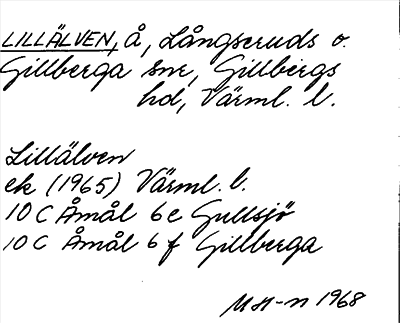 LILLÄLVEN, å, Långseruds o.
Gillberga snr, Gillbergs
hd, Värml. l.
Lillälven
ek (1965) Värml. l.
10 C Åmål 6e Gullsjö
10 C Åmål 6 f Gillberga
M H-n 1968